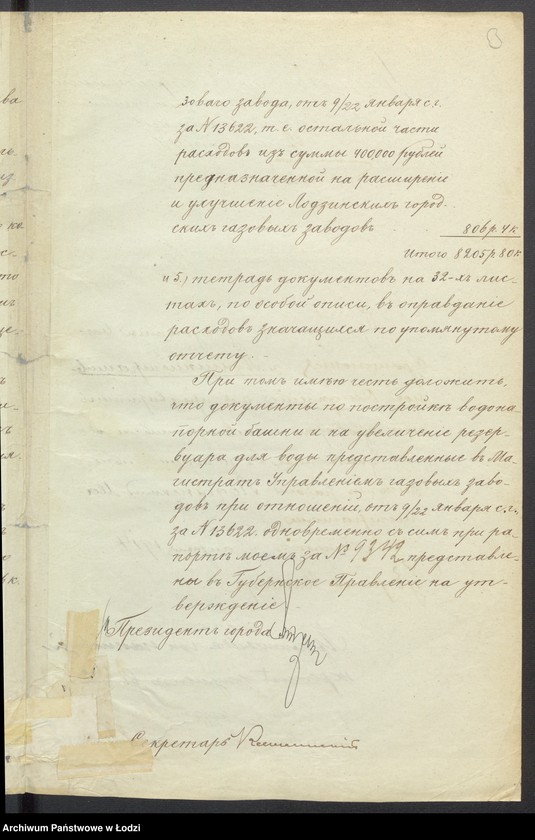 зоваго завода, отъ 9/22 января с.г.
за N 13622, т.е. остальной части
расходовъ изъ суммы 400,000 рублей
предназначенной на расширеніе
и улучшеніе Лодзинскихъ город-
скихъ газовыхъ заводовъ 806 р. 4 к
Итого 8205 р 80 к
и 5.) тетрадь документовъ на 32-хъ лис-
тахъ, по особой описи, въ оправданіе
расходовъ значащихся по упомянутому
отчету.
При томъ имѣю честь доложить,
что документы по постройкѣ водона-
порной башни и на увеличеніе резер-
вуара для воды представленные въ Ма-
гистратъ Управленіемъ газовыхъ заво-
довъ при отношеніи, отъ 9/22 января с.г.
за N 13622 одновременно съ симъ при ра-
портѣ моемъ за № 9342 представле-
ны въ Губернское Правленіе на ут-
вержденіе.
Президентъ города
Секретарь
Archiwum Państwowe w Łodzi